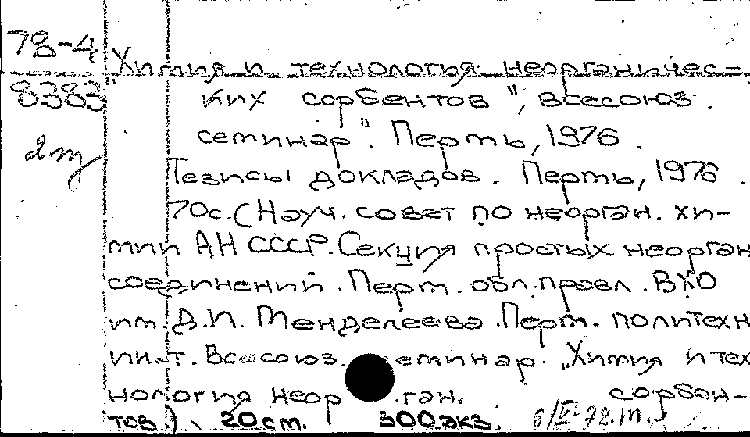 78-4
8383
2т
"Химия и технология неорганичес=
ких сорбентов", всесоюз.
семинар". Пермь, 1976.
Тезисы докладов. Пермь, 1976.
70с. (Науч. совет по неорган. хи-
мии АН СССР. Секция простых неорган
соединений. Перм. обл. правл. ВХО
им. Д.И. Менделеева. Перм. политехн
ин-т. Всесоюз. еминар. "Химия и тех
нология неор .ган. сорбен-
тов). 20 ст. 300 экз.